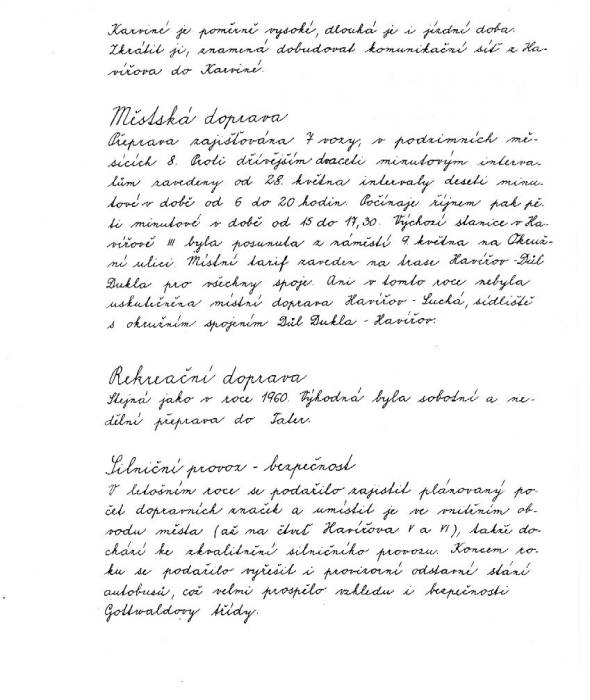 Karviné je poměrně vysoké, dlouhá je i jízdní doba.
Zkrátit ji, znamená dobudovat komunikační síť z Ha-
vířova do Karviné.
Městská doprava
Přeprava zajišťována 7 vozy, v podzimních mě-
sících 8. Proti dřívějším dvaceti minutovým interva-
lům zavedeny od 28. května intervaly deseti minu-
tové v době od 6 do 20 hodin. Počínaje říjnem pak pě-
ti minutové v době od 15 do 17,30. Výchozí stanice v Ha-
vířově III byla posunuta z náměstí 9. května na Okruž-
ní ulici. Místní tarif zaveden na trase Havířov - Důl
Dukla pro všechny spoje. Ani v tomto roce nebyla
uskutečněna místní doprava Havířov - Suchá, sídliště
s okružním spojením Důl Dukla - Havířov.
Rekreační doprava
Stejná jako v roce 1960. Výhodná byla sobotní a ne-
dělní přeprava do Tater.
Silniční provoz - bezpečnost
V letošním roce se podařilo zajistit plánovaný po-
čet dopravních značek a umístit je ve vnitřním ob-
vodu města (až na čtvrť Havířova V a VI), takže do-
chází ke zkvalitnění silničního provozu. Koncem ro-
ku se podařilo vyřešit i provizorní odstavní stání
autobusů, což velmi prospělo vzhledu i bezpečnosti
Gottwaldovy třídy.